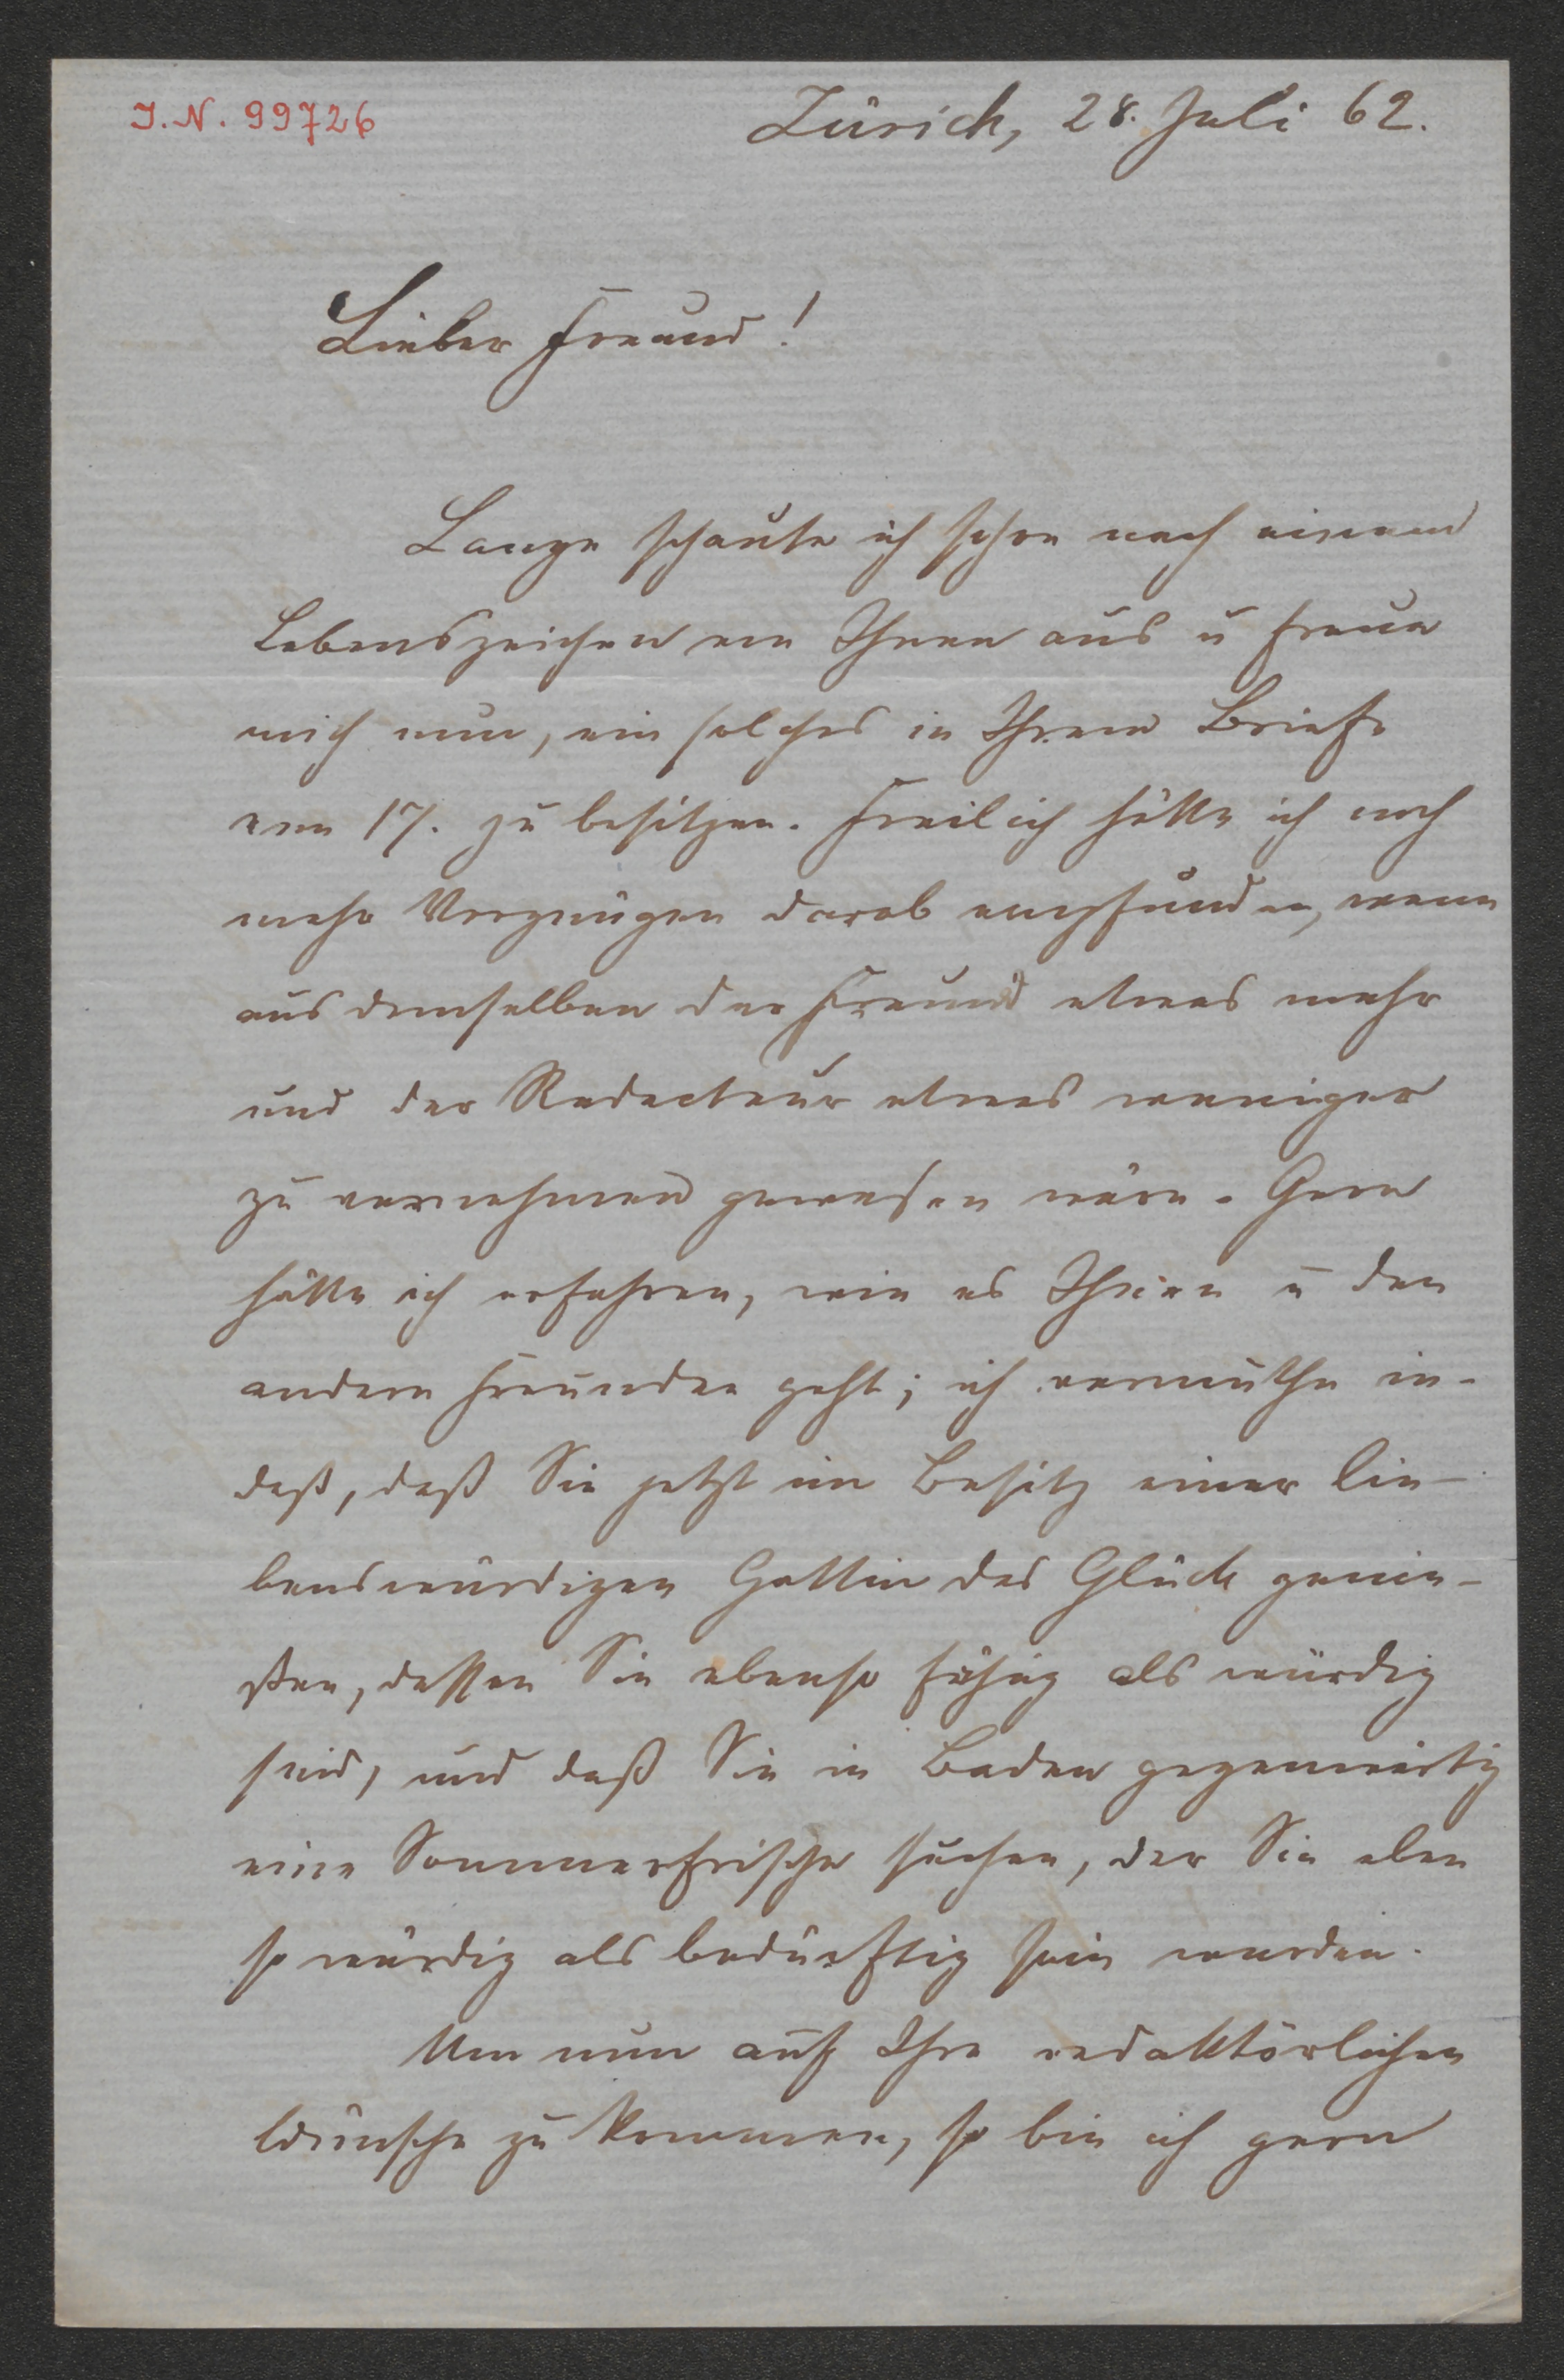 I.N. 99726
Zürich, 28. Juli 62.
Lieber Freund!
Lange schaute ich schon nach einem
Lebenszeichen von Ihnen aus u freue
mich nun, ein solches in Ihrem Briefe
vom 17. zu besitzen. Freilich hätte ich noch
mehr Vergnügen darob empfunden, wenn
aus demselben der Freund etwas mehr
und der Redacteur etwas weniger
zu vernehmen gewesen wäre. Gern
hätte ich erfahren, wie es Ihnen u den
andern Freunden geht; ich vermuthe in-
deß, daß Sie jetzt im Besitz einer lie-
benswürdigen Gattin das Glück genie-
ßen, dessen Sie ebenso fähig als würdig
sind, und daß Sie in Baden gegenwärtig
eine Sommerfrische suchen, der Sie eben
so würdig als bedürftig sein werden.
Um nun auf Ihre redaktörlichen
Wünsche zu kommen, so bin ich gern